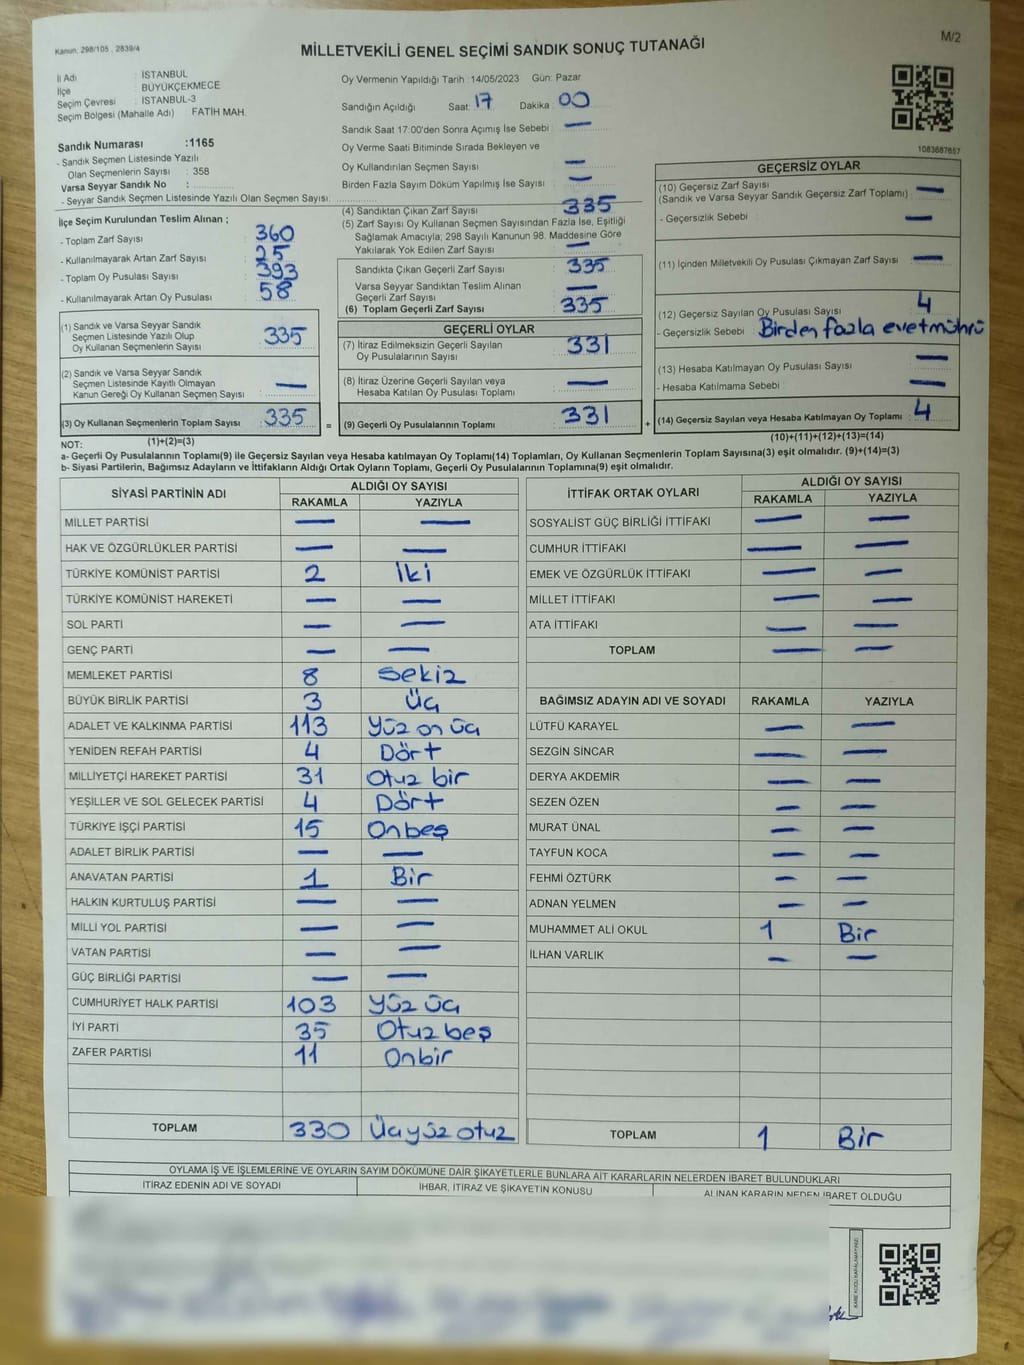 Kanun, 298/105 , 2839/4
M/2
MİLLETVEKİLİ GENEL SEÇİMİ SANDIK SONUÇ TUTANAĞI
İl Adı : İSTANBUL
İlçe : BÜYÜKÇEKMECE
Seçim Çevresi : İSTANBUL-3
Seçim Bölgesi (Mahalle Adı) FATİH MAH.
Sandık Numarası :1165
- Sandık Seçmen Listesinde Yazılı
Olan Seçmenlerin Sayısı : 358
Varsa Seyyar Sandık No :
- Seyyar Sandık Seçmen Listesinde Yazılı Olan Seçmen Sayısı:
Oy Vermenin Yapıldığı Tarih : 14/05/2023 Gün: Pazar
Sandığın Açıldığı Saat: 17 Dakika 00
Sandık Saat 17:00'den Sonra Açımış İse Sebebi : —
Oy Verme Saati Bitiminde Sırada Bekleyen ve
Oy Kullandırılan Seçmen Sayısı : —
Birden Fazla Sayım Döküm Yapılmış İse Sayısı : —
1083687657
İlçe Seçim Kurulundan Teslim Alınan ;
- Toplam Zarf Sayısı : 360
- Kullanılmayarak Artan Zarf Sayısı : 25
- Toplam Oy Pusulası Sayısı : 393
- Kullanılmayarak Artan Oy Pusulası : 58
(1) Sandık ve Varsa Seyyar Sandık
Seçmen Listesinde Yazılı Olup
Oy Kullanan Seçmenlerin Sayısı : 335
(2) Sandık ve Varsa Seyyar Sandık
Seçmen Listesinde Kayıtlı Olmayan
Kanun Gereği Oy Kullanan Seçmen Sayısı : —
(3) Oy Kullanan Seçmenlerin Toplam Sayısı : 335 =
(4) Sandıktan Çıkan Zarf Sayısı : 335
(5) Zarf Sayısı Oy Kullanan Seçmen Sayısından Fazla İse, Eşitliği
Sağlamak Amacıyla; 298 Sayılı Kanunun 98. Maddesine Göre
Yakılarak Yok Edilen Zarf Sayısı : —
Sandıkta Çıkan Geçerli Zarf Sayısı : 335
Varsa Seyyar Sandıktan Teslim Alınan
Geçerli Zarf Sayısı : —
(6) Toplam Geçerli Zarf Sayısı : 335
GEÇERLİ OYLAR
(7) İtiraz Edilmeksizin Geçerli Sayılan
Oy Pusulalarının Sayısı : 331
(8) İtiraz Üzerine Geçerli Sayılan veya
Hesaba Katılan Oy Pusulası Toplamı : —
(9) Geçerli Oy Pusulalarının Toplamı : 331 +
GEÇERSİZ OYLAR
(10) Geçersiz Zarf Sayısı : —
(Sandık ve Varsa Seyyar Sandık Geçersiz Zarf Toplamı)
- Geçersizlik Sebebi : —
(11) İçinden Milletvekili Oy Pusulası Çıkmayan Zarf Sayısı : —
(12) Geçersiz Sayılan Oy Pusulası Sayısı : 4
- Geçersizlik Sebebi : Birden fazla evetmührü
(13) Hesaba Katılmayan Oy Pusulası Sayısı : —
- Hesaba Katılmama Sebebi : —
(14) Geçersiz Sayılan veya Hesaba Katılmayan Oy Toplamı : 4
NOT: (1)+(2)=(3) (10)+(11)+(12)+(13)=(14)
a- Geçerli Oy Pusulalarının Toplamı(9) ile Geçersiz Sayılan veya Hesaba katılmayan Oy Toplamı(14) Toplamları, Oy Kullanan Seçmenlerin Toplam Sayısına(3) eşit olmalıdır. (9)+(14)=(3)
b- Siyasi Partilerin, Bağımsız Adayların ve İttifakların Aldığı Ortak Oyların Toplamı, Geçerli Oy Pusulalarının Toplamına(9) eşit olmalıdır.
SİYASİ PARTİNİN ADI ALDIĞI OY SAYISI
RAKAMLA YAZIYLA
MİLLET PARTİSİ — —
HAK VE ÖZGÜRLÜKLER PARTİSİ — —
TÜRKİYE KOMÜNİST PARTİSİ 2 İki
TÜRKİYE KOMÜNİST HAREKETİ — —
SOL PARTİ — —
GENÇ PARTİ — —
MEMLEKET PARTİSİ 8 Sekiz
BÜYÜK BİRLİK PARTİSİ 3 Üç
ADALET VE KALKINMA PARTİSİ 113 Yüz on üç
YENİDEN REFAH PARTİSİ 4 Dört
MİLLİYETÇİ HAREKET PARTİSİ 31 Otuz bir
YEŞİLLER VE SOL GELECEK PARTİSİ 4 Dört
TÜRKİYE İŞÇİ PARTİSİ 15 Onbeş
ADALET BİRLİK PARTİSİ — —
ANAVATAN PARTİSİ 1 Bir
HALKIN KURTULUŞ PARTİSİ — —
MİLLİ YOL PARTİSİ — —
VATAN PARTİSİ — —
GÜÇ BİRLİĞİ PARTİSİ — —
CUMHURİYET HALK PARTİSİ 103 Yüz üç
İYİ PARTİ 35 Otuz beş
ZAFER PARTİSİ 11 Onbir
TOPLAM 330 Üçyüz otuz
İTTİFAK ORTAK OYLARI ALDIĞI OY SAYISI
RAKAMLA YAZIYLA
SOSYALİST GÜÇ BİRLİĞİ İTTİFAKI — —
CUMHUR İTTİFAKI — —
EMEK VE ÖZGÜRLÜK İTTİFAKI — —
MİLLET İTTİFAKI — —
ATA İTTİFAKI — —
TOPLAM — —
BAĞIMSIZ ADAYIN ADI VE SOYADI RAKAMLA YAZIYLA
LÜTFÜ KARAYEL — —
SEZGİN SİNCAR — —
DERYA AKDEMİR — —
SEZEN ÖZEN — —
MURAT ÜNAL — —
TAYFUN KOCA — —
FEHMİ ÖZTÜRK — —
ADNAN YELMEN — —
MUHAMMET ALİ OKUL 1 Bir
İLHAN VARLIK — —
TOPLAM 1 Bir
OYLAMA İŞ VE İŞLEMLERİNE VE OYLARIN SAYIM DÖKÜMÜNE DAİR ŞİKAYETLERLE BUNLARA AİT KARARLARIN NELERDEN İBARET BULUNDUKLARI
İTİRAZ EDENİN ADI VE SOYADI İHBAR, İTİRAZ VE ŞİKAYETİN KONUSU ALINAN KARARIN NEDEN İBARET OLDUĞU
KARE KODU KARALAMAYINIZ